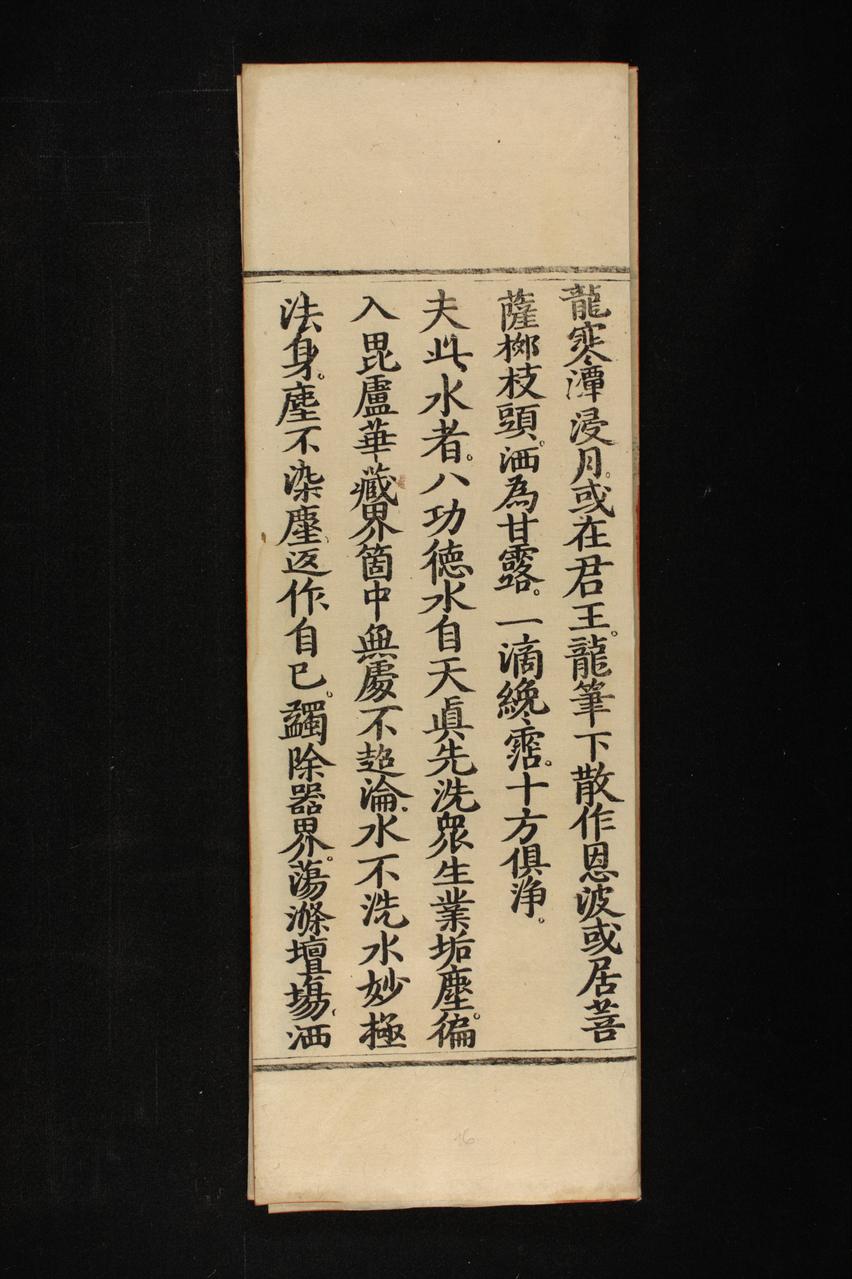 龍寒潭浸月。或在君王。龍筆下散作恩波或居菩
薩楖枝頭、洒為甘露。一滴纔霑。十方俱淨。
夫此水者。八功德水自天眞先洗衆生業垢塵。徧
入毘盧華藏界箇中無處不超淪、水不洗水妙極
法身。塵不染塵、返作自己。蠲除器界。蕩滌壇場、洒
16